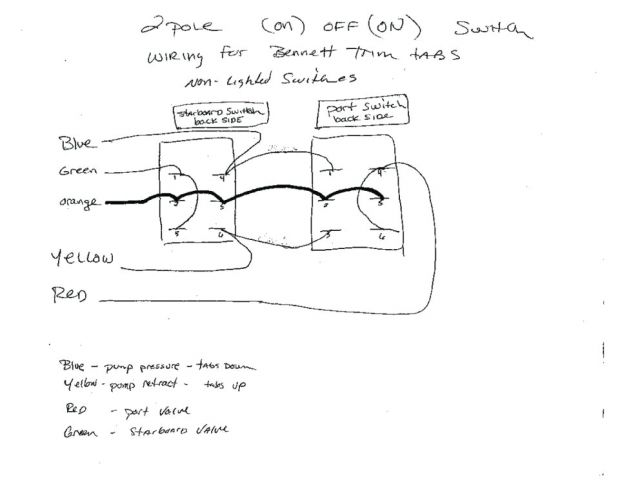 2 pole (on) OFF (ON) Switch
wiring for Bennett Trim tABS
Non-Lighted Switches
Starboard Switch
back SIDE
port Switch
back SIDE
Blue
Green
orange
Yellow
RED
1 4
5
3 6
1 4
3 6
Blue - pump pressure - tABS Down
Yellow - pump retract - tabs up
RED - port Valve
Green - STARBOARD VALVE